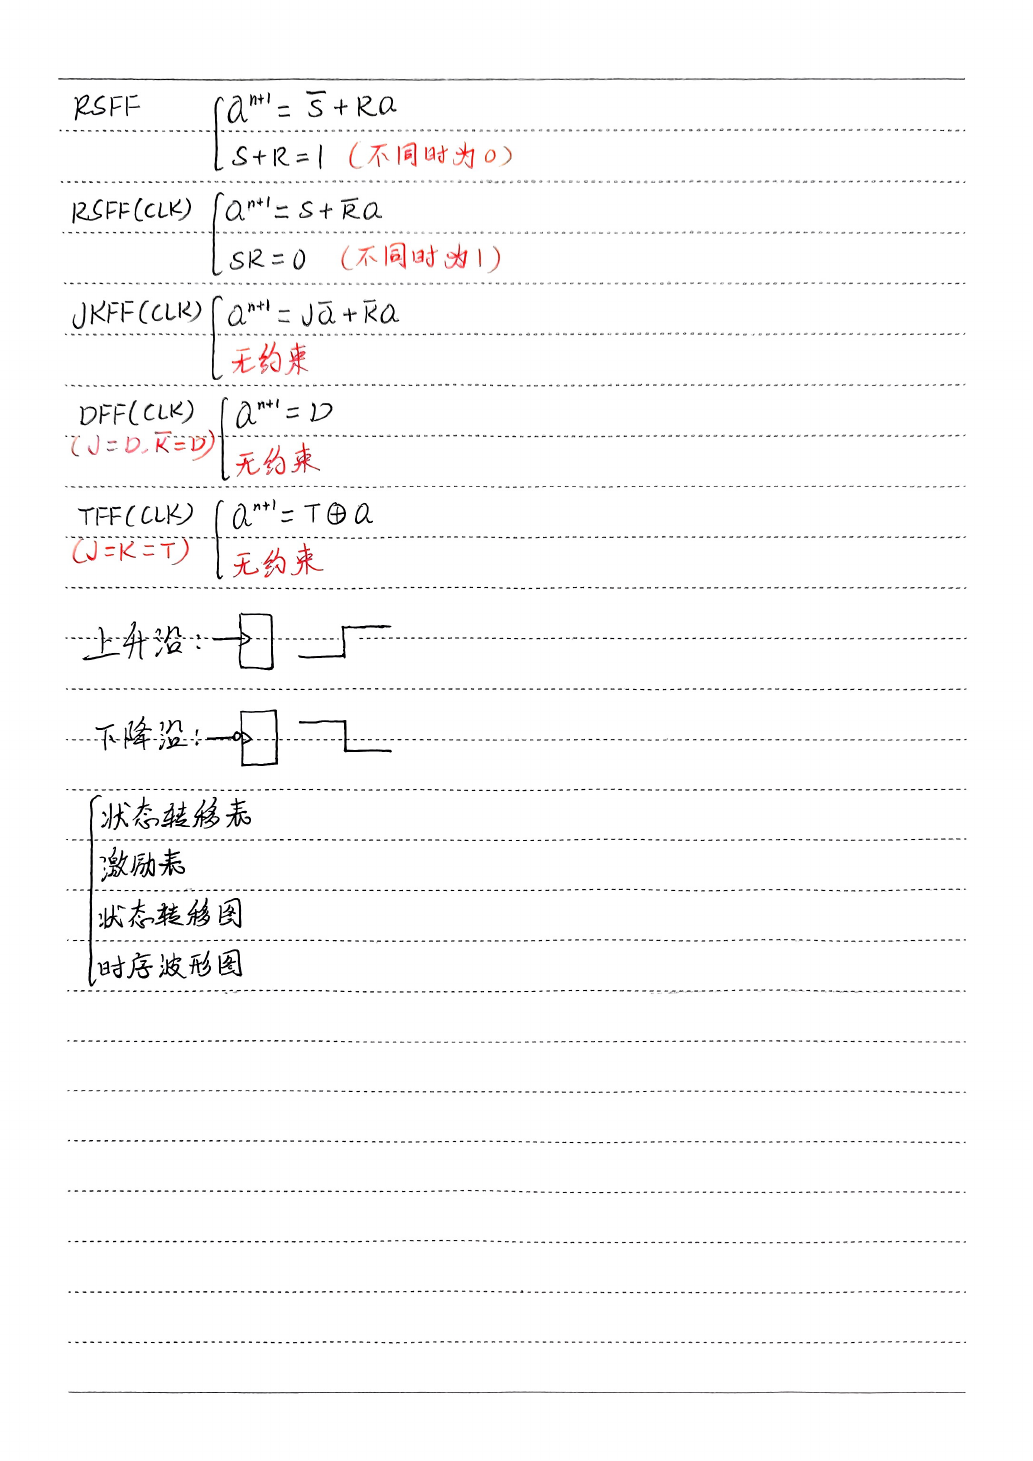 RSFF { Q^{n+1} = S̅ + RQ
S+R=1 (不同时为0)
RSFF(CLK) { Q^{n+1} = S + R̅Q
SR=0 (不同时为1)
JKFF(CLK) { Q^{n+1} = JQ̅ + K̅Q
无约束
DFF(CLK) { Q^{n+1} = D
(J=D, K̅=D)
无约束
TFF(CLK) { Q^{n+1} = T⊕Q
(J=K=T)
无约束
上升沿:
下降沿:
{ 状态转移表
激励表
状态转移图
时序波形图